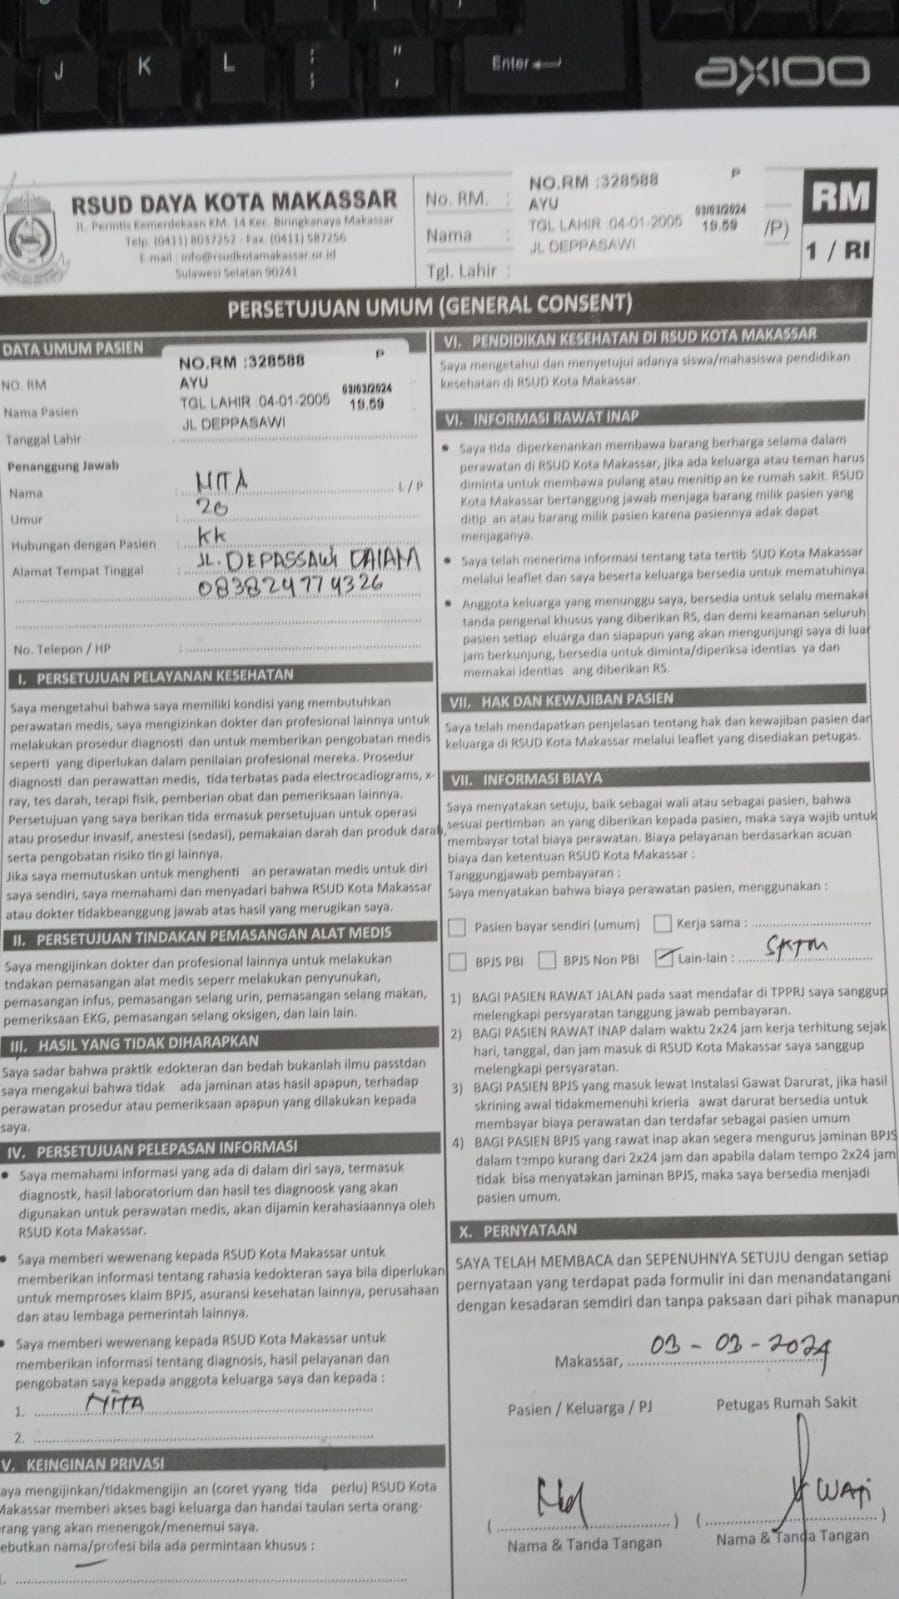 J K L ; : ' " Enter
AXIOO
RSUD DAYA KOTA MAKASSAR
JL. Perintis Kemerdekaan KM. 14 Kec. Biringkanaya Makassar
Telp. (0411) 8037252 - Fax. (0411) 587256
E-mail : info@rsudkotamakassar.or.id
Sulawesi Selatan 90241
No. RM. :
Nama :
Tgl. Lahir :
NO.RM :328588 P
AYU
TGL LAHIR :04-01-2005 03/03/2024 19.59
JL DEPPASAWI
/P)
RM
1 / RI
PERSETUJUAN UMUM (GENERAL CONSENT)
DATA UMUM PASIEN
NO.RM :328588 P
NO. RM
AYU
Nama Pasien
TGL LAHIR :04-01-2005 03/03/2024 19.59
JL DEPPASAWI
Tanggal Lahir
Penanggung Jawab
Nama : L / P
Umur : 20
Hubungan dengan Pasien : KK
Alamat Tempat Tinggal : JL. DEPASSAWI DALAM
083824779326
No. Telepon / HP :
I. PERSETUJUAN PELAYANAN KESEHATAN
Saya mengetahui bahwa saya memiliki kondisi yang membutuhkan
perawatan medis, saya mengizinkan dokter dan profesional lainnya untuk
melakukan prosedur diagnosti dan untuk memberikan pengobatan medis
seperti yang diperlukan dalam penilaian profesional mereka. Prosedur
diagnosti dan perawattan medis, tida terbatas pada electrocadiograms, x-
ray, tes darah, terapi fisik, pemberian obat dan pemeriksaan lainnya.
Persetujuan yang saya berikan tida ermasuk persetujuan untuk operasi
atau prosedur invasif, anestesi (sedasi), pemakaian darah dan produk darah,
serta pengobatan risiko tin gi lainnya.
Jika saya memutuskan untuk menghenti an perawatan medis untuk diri
saya sendiri, saya memahami dan menyadari bahwa RSUD Kota Makassar
atau dokter tidakbeanggung jawab atas hasil yang merugikan saya.
II. PERSETUJUAN TINDAKAN PEMASANGAN ALAT MEDIS
Saya mengijinkan dokter dan profesional lainnya untuk melakukan
tndakan pemasangan alat medis seperr melakukan penyunukan,
pemasangan infus, pemasangan selang urin, pemasangan selang makan,
pemeriksaan EKG, pemasangan selang oksigen, dan lain lain.
III. HASIL YANG TIDAK DIHARAPKAN
Saya sadar bahwa praktik edokteran dan bedah bukanlah ilmu passtdan
saya mengakui bahwa tidak ada jaminan atas hasil apapun, terhadap
perawatan prosedur atau pemeriksaan apapun yang dilakukan kepada
saya.
IV. PERSETUJUAN PELEPASAN INFORMASI
• Saya memahami informasi yang ada di dalam diri saya, termasuk
diagnostk, hasil laboratorium dan hasil tes diagnoosk yang akan
digunakan untuk perawatan medis, akan dijamin kerahasiaannya oleh
RSUD Kota Makassar.
• Saya memberi wewenang kepada RSUD Kota Makassar untuk
memberikan informasi tentang rahasia kedokteran saya bila diperlukan
untuk memproses klaim BPJS, asuransi kesehatan lainnya, perusahaan
dan atau lembaga pemerintah lainnya.
• Saya memberi wewenang kepada RSUD Kota Makassar untuk
memberikan informasi tentang diagnosis, hasil pelayanan dan
pengobatan saya kepada anggota keluarga saya dan kepada :
1.
2.
V. KEINGINAN PRIVASI
aya mengijinkan/tidakmengijin an (coret yyang tida perlu) RSUD Kota
Makassar memberi akses bagi keluarga dan handai taulan serta orang-
rang yang akan menengok/menemui saya.
ebutkan nama/profesi bila ada permintaan khusus :
VI. PENDIDIKAN KESEHATAN DI RSUD KOTA MAKASSAR
Saya mengetahui dan menyetujui adanya siswa/mahasiswa pendidikan
kesehatan di RSUD Kota Makassar.
VI. INFORMASI RAWAT INAP
• Saya tida diperkenankan membawa barang berharga selama dalam
perawatan di RSUD Kota Makassar, jika ada keluarga atau teman harus
diminta untuk membawa pulang atau menitip an ke rumah sakit. RSUD
Kota Makassar bertanggung jawab menjaga barang milik pasien yang
ditip an atau barang milik pasien karena pasiennya adak dapat
menjaganya.
• Saya telah menerima informasi tentang tata tertib SUD Kota Makassar
melalui leaflet dan saya beserta keluarga bersedia untuk mematuhinya.
• Anggota keluarga yang menunggu saya, bersedia untuk selalu memakai
tanda pengenal khusus yang diberikan RS, dan demi keamanan seluruh
pasien setiap eluarga dan siapapun yang akan mengunjungi saya di luar
jam berkunjung, bersedia untuk diminta/diperiksa identias ya dan
memakai identias ang diberikan RS.
VII. HAK DAN KEWAJIBAN PASIEN
Saya telah mendapatkan penjelasan tentang hak dan kewajiban pasien dan
keluarga di RSUD Kota Makassar melalui leaflet yang disediakan petugas.
VII. INFORMASI BIAYA
Saya menyatakan setuju, baik sebagai wali atau sebagai pasien, bahwa
sesuai pertimban an yang diberikan kepada pasien, maka saya wajib untuk
membayar total biaya perawatan. Biaya pelayanan berdasarkan acuan
biaya dan ketentuan RSUD Kota Makassar :
Tanggungjawab pembayaran :
Saya menyatakan bahwa biaya perawatan pasien, menggunakan :
Pasien bayar sendiri (umum) Kerja sama :
BPJS PBI BPJS Non PBI Lain-lain : SKTM
1) BAGI PASIEN RAWAT JALAN pada saat mendafar di TPPRJ saya sanggup
melengkapi persyaratan tanggung jawab pembayaran.
2) BAGI PASIEN RAWAT INAP dalam waktu 2x24 jam kerja terhitung sejak
hari, tanggal, dan jam masuk di RSUD Kota Makassar saya sanggup
melengkapi persyaratan.
3) BAGI PASIEN BPJS yang masuk lewat Instalasi Gawat Darurat, jika hasil
skrining awal tidakmemenuhi krieria awat darurat bersedia untuk
membayar biaya perawatan dan terdafar sebagai pasien umum
4) BAGI PASIEN BPJS yang rawat inap akan segera mengurus jaminan BPJS
dalam tempo kurang dari 2x24 jam dan apabila dalam tempo 2x24 jam
tidak bisa menyatakan jaminan BPJS, maka saya bersedia menjadi
pasien umum.
X. PERNYATAAN
SAYA TELAH MEMBACA dan SEPENUHNYA SETUJU dengan setiap
pernyataan yang terdapat pada formulir ini dan menandatangani
dengan kesadaran semdiri dan tanpa paksaan dari pihak manapun
Makassar, 03 - 03 - 2024
Pasien / Keluarga / PJ Petugas Rumah Sakit
( ) ( )
Nama & Tanda Tangan Nama & Tanda Tangan